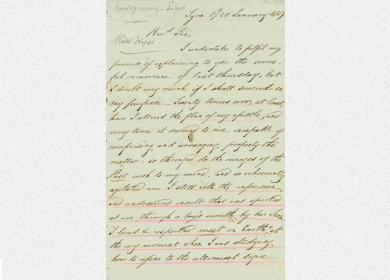 Syra 8/20 January 1829
Miss Hyper
Revd Sir,
I undertake to fulfil my
promise of explaining to you the sorrow-
ful occurrence of last Thursday, but
I doubt very much if I shall succeed in
my purpose. Twenty times over, at least,
have I altered the plan of my epistle, and
every time it seemed to me incapable of
comprising and arranging properly the
matter: so thronged do the images of the
last rush to my mind, and so vehemently
agitated am I still with the
and undeserved insult that was
at me, through a boy's mouth, by her whom
I loved & respected most on Earth, at
the very moment when I was studying
how to